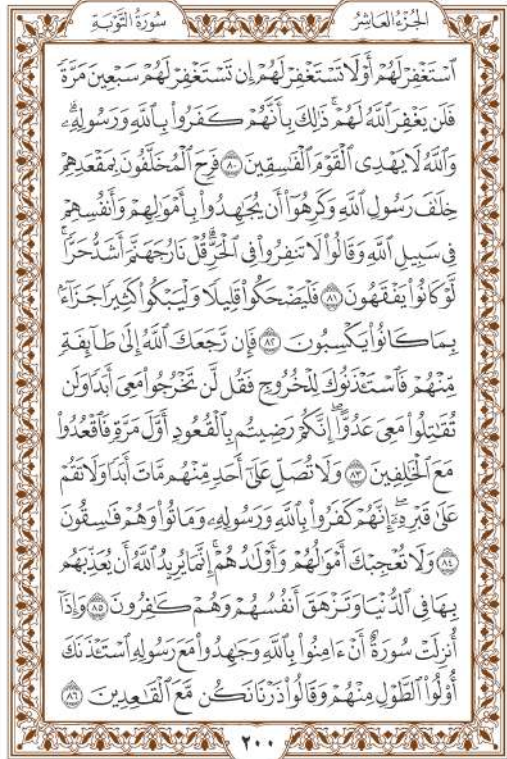 الجُزْءُ العَاشِرُ
سُورَةُ التَّوْبَةِ
ٱسْتَغْفِرْ لَهُمْ أَوْ لَا تَسْتَغْفِرْ لَهُمْ إِن تَسْتَغْفِرْ لَهُمْ سَبْعِينَ مَرَّةً
فَلَن يَغْفِرَ ٱللَّهُ لَهُمْۚ ذَٰلِكَ بِأَنَّهُمْ كَفَرُوا۟ بِٱللَّهِ وَرَسُولِهِۦۗ
وَٱللَّهُ لَا يَهْدِى ٱلْقَوْمَ ٱلْفَٰسِقِينَ ۝٨٠ فَرِحَ ٱلْمُخَلَّفُونَ بِمَقْعَدِهِمْ
خِلَٰفَ رَسُولِ ٱللَّهِ وَكَرِهُوٓا۟ أَن يُجَٰهِدُوا۟ بِأَمْوَٰلِهِمْ وَأَنفُسِهِمْ
فِى سَبِيلِ ٱللَّهِ وَقَالُوا۟ لَا تَنفِرُوا۟ فِى ٱلْحَرِّۗ قُلْ نَارُ جَهَنَّمَ أَشَدُّ حَرًّاۚ
لَّوْ كَانُوا۟ يَفْقَهُونَ ۝٨١ فَلْيَضْحَكُوا۟ قَلِيلًا وَلْيَبْكُوا۟ كَثِيرًا جَزَآءًۢ
بِمَا كَانُوا۟ يَكْسِبُونَ ۝٨٢ فَإِن رَّجَعَكَ ٱللَّهُ إِلَىٰ طَآئِفَةٍ
مِّنْهُمْ فَٱسْتَـْٔذَنُوكَ لِلْخُرُوجِ فَقُل لَّن تَخْرُجُوا۟ مَعِىَ أَبَدًا وَلَن
تُقَٰتِلُوا۟ مَعِىَ عَدُوًّاۖ إِنَّكُمْ رَضِيتُم بِٱلْقُعُودِ أَوَّلَ مَرَّةٍ فَٱقْعُدُوا۟
مَعَ ٱلْخَٰلِفِينَ ۝٨٣ وَلَا تُصَلِّ عَلَىٰٓ أَحَدٍ مِّنْهُم مَّاتَ أَبَدًا وَلَا تَقُمْ
عَلَىٰ قَبْرِهِۦٓۖ إِنَّهُمْ كَفَرُوا۟ بِٱللَّهِ وَرَسُولِهِۦ وَمَاتُوا۟ وَهُمْ فَٰسِقُونَ
۝٨٤ وَلَا تُعْجِبْكَ أَمْوَٰلُهُمْ وَأَوْلَٰدُهُمْۚ إِنَّمَا يُرِيدُ ٱللَّهُ أَن يُعَذِّبَهُم
بِهَا فِى ٱلدُّنْيَا وَتَزْهَقَ أَنفُسُهُمْ وَهُمْ كَٰفِرُونَ ۝٨٥ وَإِذَآ
أُنزِلَتْ سُورَةٌ أَنْ ءَامِنُوا۟ بِٱللَّهِ وَجَٰهِدُوا۟ مَعَ رَسُولِهِ ٱسْتَـْٔذَنَكَ
أُو۟لُوا۟ ٱلطَّوْلِ مِنْهُمْ وَقَالُوا۟ ذَرْنَا نَكُن مَّعَ ٱلْقَٰعِدِينَ ۝٨٦
٢٠٠